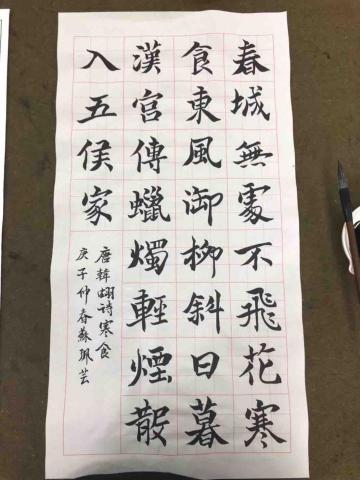 春城無處不飛花寒
食東風御柳斜日暮
漢宮傳蠟燭輕煙散
入五侯家
唐韓翃诗寒食
庚子仲春蘇珮芸